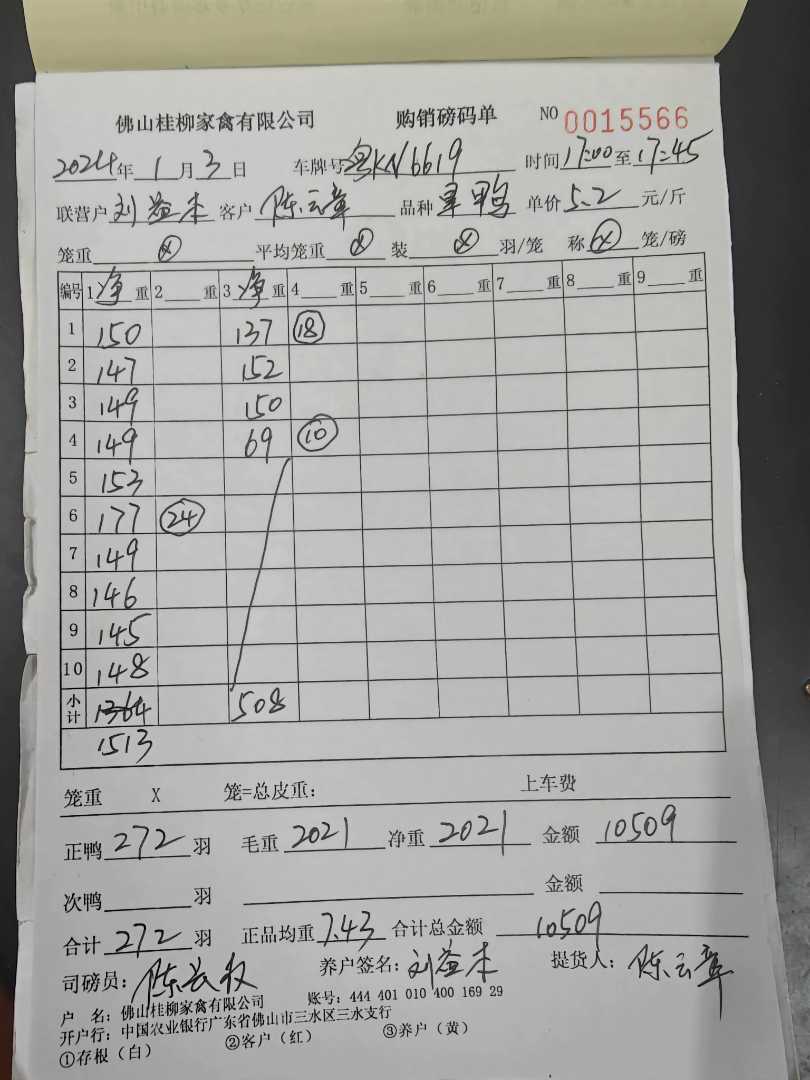 佛山桂柳家禽有限公司 购销磅码单 NO 0015566
2024年1月3日 车牌号粤KN6619 时间17:00至17:45
联营户刘益本 客户陈云章 品种单鸭 单价5.2元/斤
笼重 平均笼重 装 羽/笼 称 笼/磅
编号 1净重 2重 3净重 4重 5重 6重 7重 8重 9重
1 150 137 18
2 147 152
3 149 150
4 149 69 10
5 153
6 177 24
7 149
8 146
9 145
10 148
小计 1364 508
1513
笼重 X 笼=总皮重: 上车费
正鸭272羽 毛重2021 净重2021 金额10509
次鸭 羽 金额
合计272羽 正品均重7.43 合计总金额10509
司磅员: 陈 养户签名: 刘益本 提货人: 陈云章
户 名: 佛山桂柳家禽有限公司 账号: 444 401 010 400 169 29
开户行: 中国农业银行广东省佛山市三水区三水支行
①存根（白） ②客户（红） ③养户（黄）